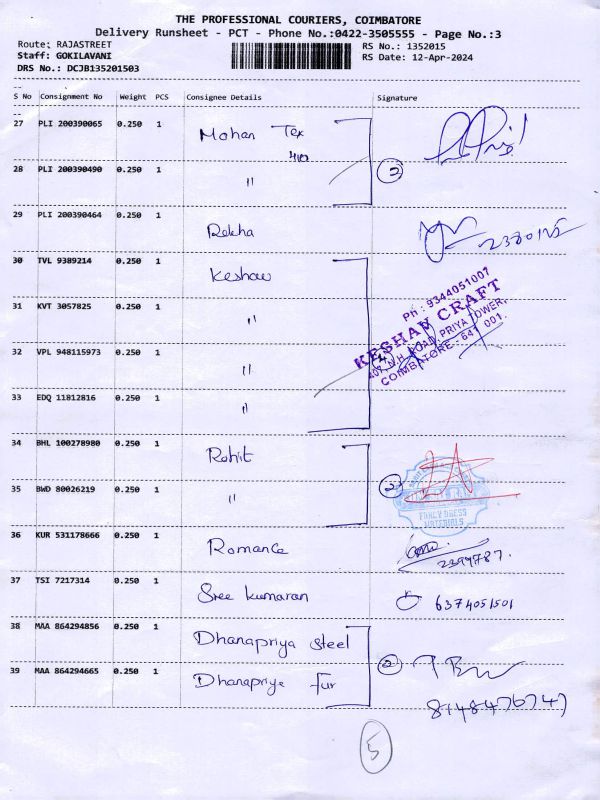 THE PROFESSIONAL COURIERS, COIMBATORE
Delivery Runsheet - PCT - Phone No.:0422-3505555 - Page No.:3
Route: RAJASTREET RS No.: 1352015
Staff: GOKILAVANI RS Date: 12-Apr-2024
DRS No.: DCJB135201503
S No Consignment No Weight PCS Consignee Details Signature
27 PLI 200390065 0.250 1 Mohan Tex
28 PLI 200390490 0.250 1 " 2
29 PLI 200390464 0.250 1 Rekha
30 TVL 9389214 0.250 1 Keshav
31 KVT 3057825 0.250 1 "
Ph : 9344051007
KESHAV CRAFT
407, N.H. ROAD, PRIYA TOWER,
COIMBATORE - 641 001.
32 VPL 948115973 0.250 1 " 4
33 EDQ 11812816 0.250 1 "
34 BHL 100278980 0.250 1 Rohit
35 BWD 80026219 0.250 1 " 2
FANCY DRESS
MATERIALS
36 KUR 531178666 0.250 1 Romance
37 TSI 7217314 0.250 1 Sree kumaran 6374051501
38 MAA 864294856 0.250 1 Dhanapriya steel
39 MAA 864294665 0.250 1 Dhanapriya fur 2
5